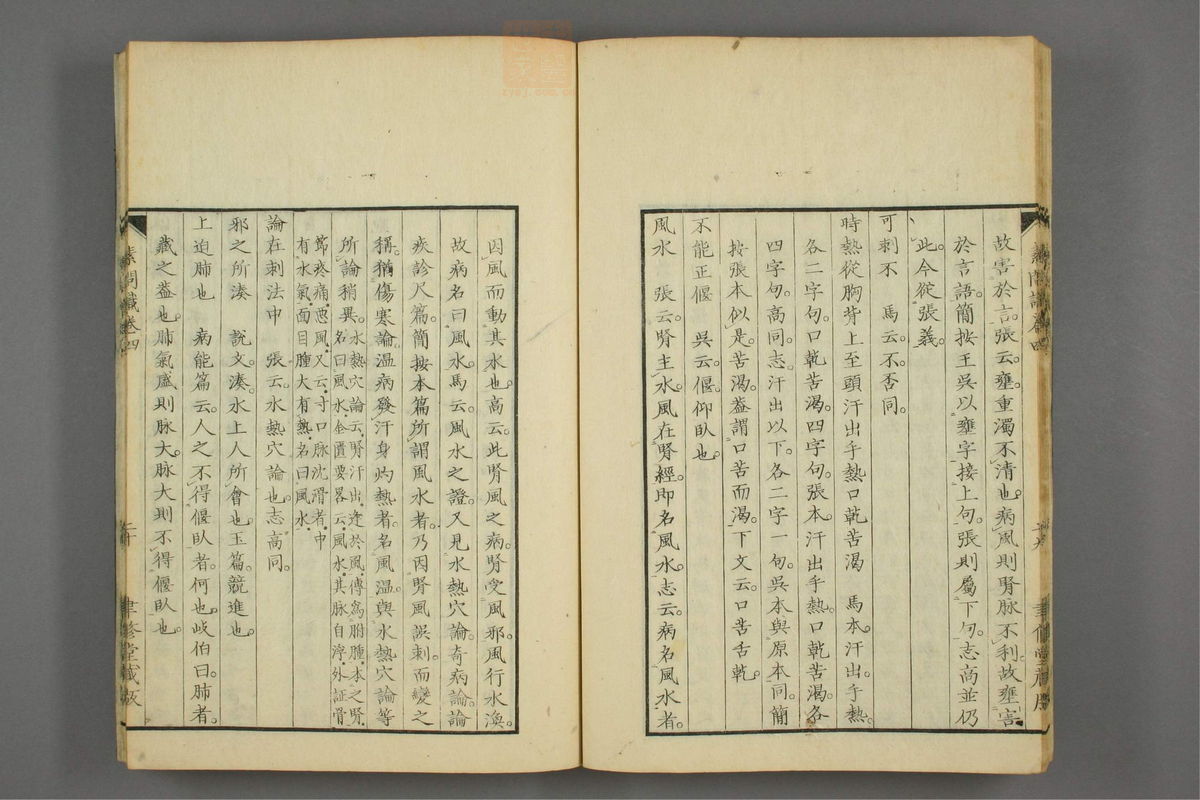 故害於言。張云。壅重濁不清也。病風則腎脉不利。故壅害
於言語。簡按王吳以壅字接上句。張則屬下句。志高並仍
此。今從張義。
可刺不　馬云。不否同。
時熱從胸背上至頭汗出手熱口乾苦渴　馬本。汗出手熱。
各二字句。口乾苦渴。四字句。張本。汗出手熱。口乾苦渴。各
四字句。高同。志汗出以下。各二字一句。吳本與原本同。簡
按張本似是。苦渴。蓋謂口苦而渴。下文云。口苦舌乾
不能正偃　吳云。偃。仰臥也。
風水　張云。腎主水。風在腎經。即名風水。志云。病名風水者。
因風而動其水也。高云。此腎風之病。腎受風邪。風行水渙。
故病名曰風水。馬云。風水之證。又見水熱穴論。奇病論。論
疾診尺篇。簡按本篇所謂風水者。乃因腎風誤刺而變之
稱。猶傷寒論。溫病發汗。身灼熱者。名風溫。與水熱穴論等
所論稍異。水熱穴論云。腎汗出逢於風。傳爲胕腫。本之腎。
名曰風水。金匱要畧云。風水。其脉自浮。外証骨
節疼痛。惡風。又云。寸口脉沈滑者。中
有水氣。面目腫大。有熱。名曰風水。
論在刺法中　張云。水熱穴論也。志高同。
邪之所湊　說文。湊。水上人所會也。玉篇。競進也。
上迫肺也　病能篇云。人之不得偃臥者。何也。岐伯曰。肺者。
藏之蓋也。肺氣盛則脉大。脉大則不得偃臥也。
素問識卷四
二十
聿修堂藏版